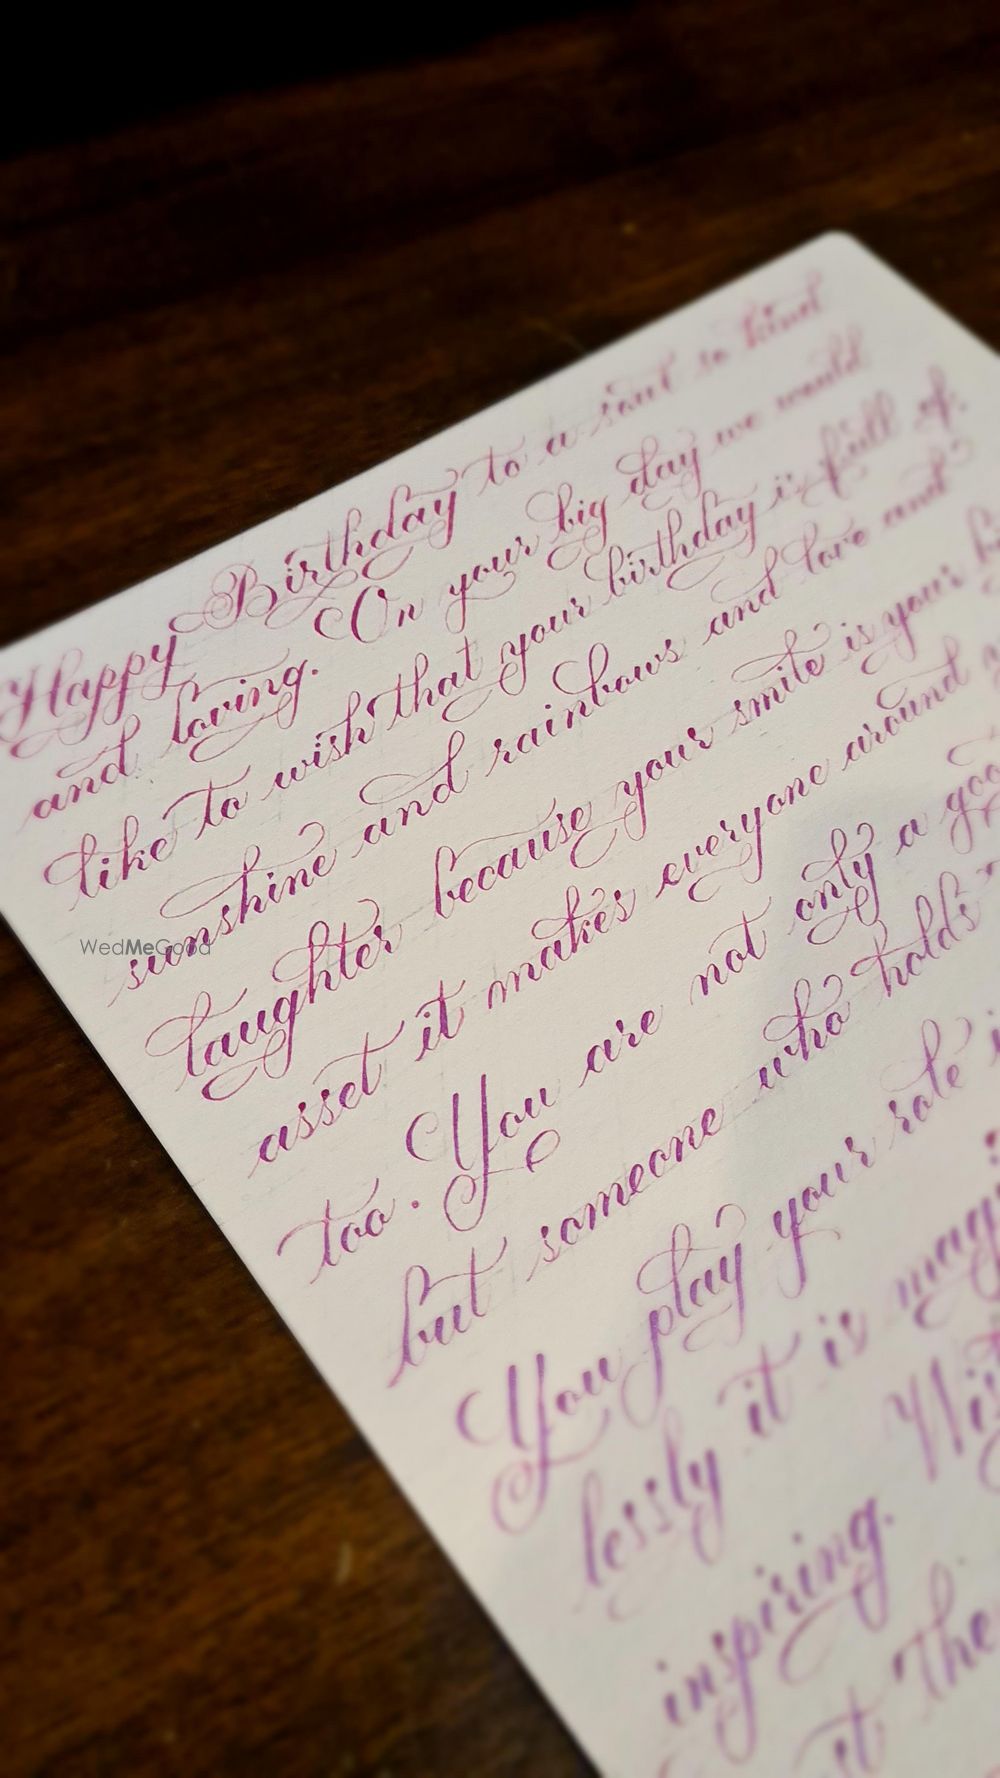 Happy Birthday to a soul so kind
and loving. On your big day we would
like to wish that your birthday is full of
sunshine and rainbows and love and
laughter because your smile is your
asset it makes everyone around
too. You are not only a
but someone who holds
You play your role
lessly it is
inspiring.
it the
WedMeGood